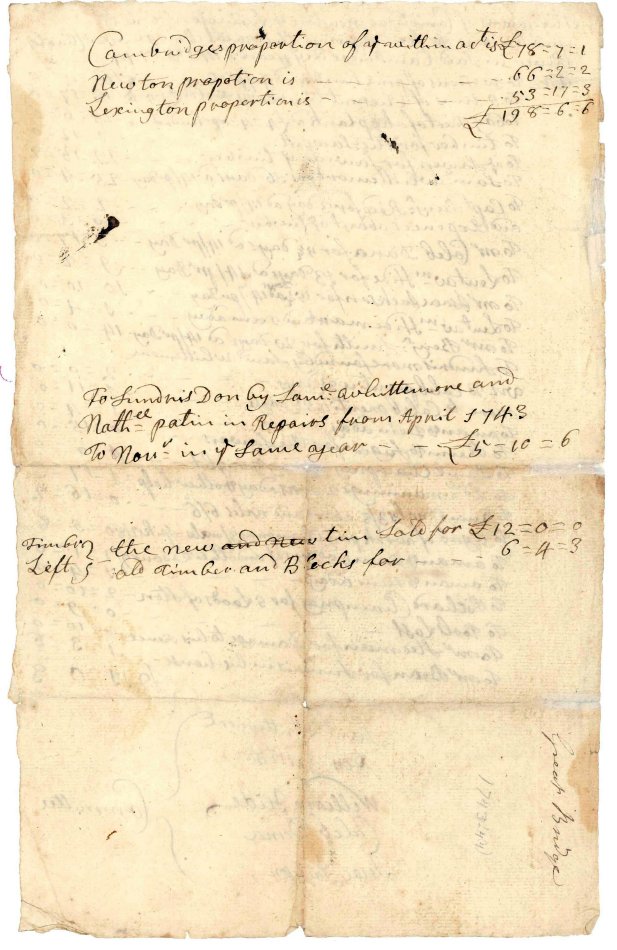 Cambridges proportion of yͤ within act is £78=7=1
Newton propotion is - - - - 66=2=2
Lexington proportion is - - - - 53=17=3
£198=6=6
To Sundris Don by Samˡ Whittemore and
Nathˡˡ patin in Repairs from April 1743
To Novʳ in yͤ Same year - - £5-10=6
Timber Left } the new and new tim Sold for £12=0=0
old Timber and Blocks for - 6=4=3
Great Bridge